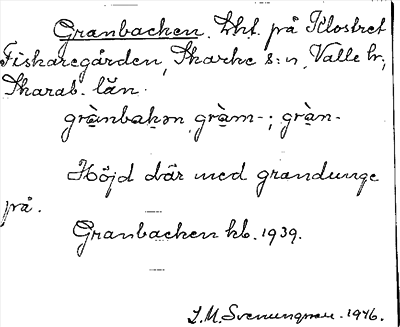 Granbacken. Lht. på Klostret
Fiskaregården, Skarke s:n, Valle hr;
Skarab. län.
grànbakən, gràm-; gràn-
Höjd där med grandunge
på.
Granbacken kb. 1939.
L.M. Svenungsson. 1946.